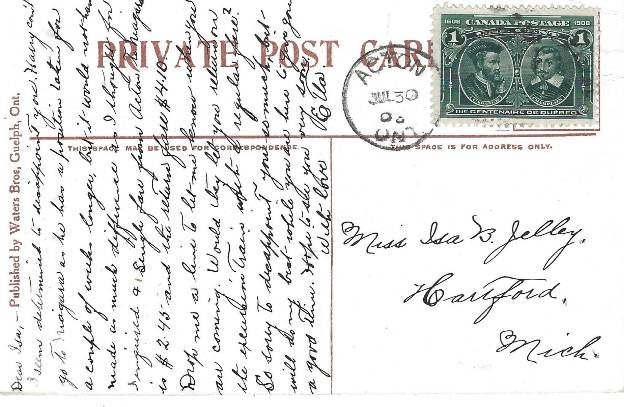 PRIVATE POST CAR
1608 CANADA POSTAGE 1908
1 1
IIIE CENTENAIRE DE QUEBEC
ACTON
JUL 30
08
ONT
THIS SPACE MAY BE USED FOR CORRESPONDENCE.
THIS SPACE IS FOR ADDRESS ONLY.
Published by Waters Bros, Guelph, Ont.
Dear Isa,—
I seem determined to disappoint you. Harry can't
go to Niagara as he has a position lasting for
a couple of weeks longer, but it works not
made as much difference as I thought for
I enquired & Single fare from Acton to Niagara
is $2.45 and the return fare $4.10.
Drop me a line to let me know when you
are coming. Would they let you return on
the excursion train with regular fare?
So sorry to disappoint you so much but
will do my best while you are here to give you
a good time. Hope to see you very soon.
With love Ella
Miss Isa B. Jelley,
Hartford,
Mich.